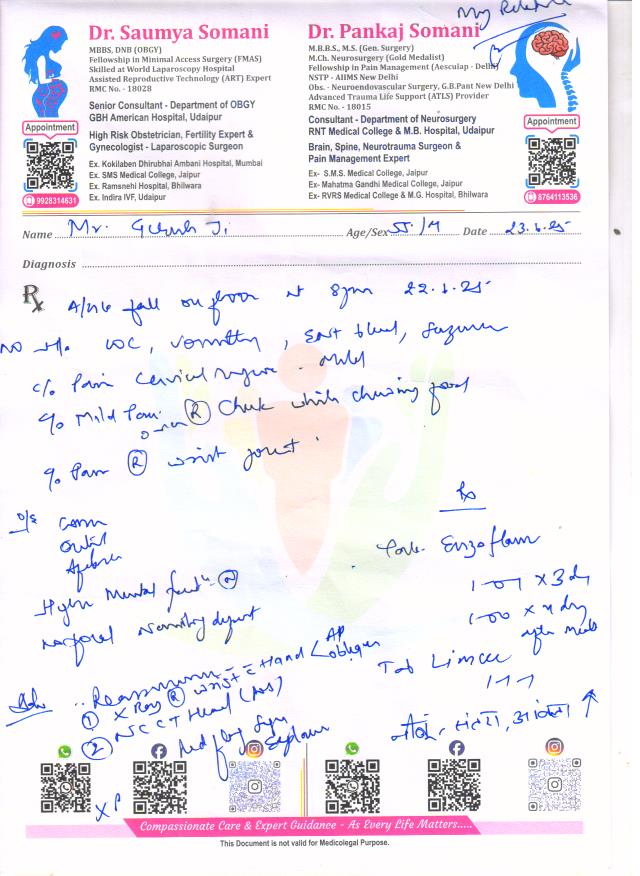 My Relative
Dr. Saumya Somani
MBBS, DNB (OBGY)
Fellowship in Minimal Access Surgery (FMAS)
Skilled at World Laparoscopy Hospital
Assisted Reproductive Technology (ART) Expert
RMC No. - 18028
Senior Consultant - Department of OBGY
GBH American Hospital, Udaipur
High Risk Obstetrician, Fertility Expert &
Gynecologist - Laparoscopic Surgeon
Ex. Kokilaben Dhirubhai Ambani Hospital, Mumbai
Ex. SMS Medical College, Jaipur
Ex. Ramsnehi Hospital, Bhilwara
Ex. Indira IVF, Udaipur
Appointment
9928314631
Dr. Pankaj Somani
M.B.B.S., M.S. (Gen. Surgery)
M.Ch. Neurosurgery (Gold Medalist)
Fellowship in Pain Management (Aesculap - Delhi)
NSTP - AIIMS New Delhi
Obs. - Neuroendovascular Surgery, G.B.Pant New Delhi
Advanced Trauma Life Support (ATLS) Provider
RMC No. - 18015
Consultant - Department of Neurosurgery
RNT Medical College & M.B. Hospital, Udaipur
Brain, Spine, Neurotrauma Surgeon &
Pain Management Expert
Ex- S.M.S. Medical College, Jaipur
Ex- Mahatma Gandhi Medical College, Jaipur
Ex- RVRS Medical College & M.G. Hospital, Bhilwara
Appointment
8764113536
Name Mr. Ji Age/Sex 55/M Date 23.6.25
Diagnosis
Rx fall on floor at 8pm 22.6.25
NO H/o LOC, vomiting, Ear bleed, Seizure
c/o Pain Cervical region - mild
c/o Mild Pain (R) Cheek while chewing food
c/o Pain (R) wrist joint
O/E Conn
Orientd
Afebrile
Higher Mental funct (N)
No focal deficit
Rx
Tab. Enzoflam
1-0-1 x 3 d
1-0-0 x day
after meals
Tab Limcee
1-1-1
Adv. Reassurance
1 X Ray (R) wrist c Hand AP oblique
2 NCCT Head
Red flag Sign Explain
नींबू, संतरा, आंवला ↑
Compassionate Care & Expert Guidance - As Every Life Matters.....
This Document is not valid for Medicolegal Purpose.